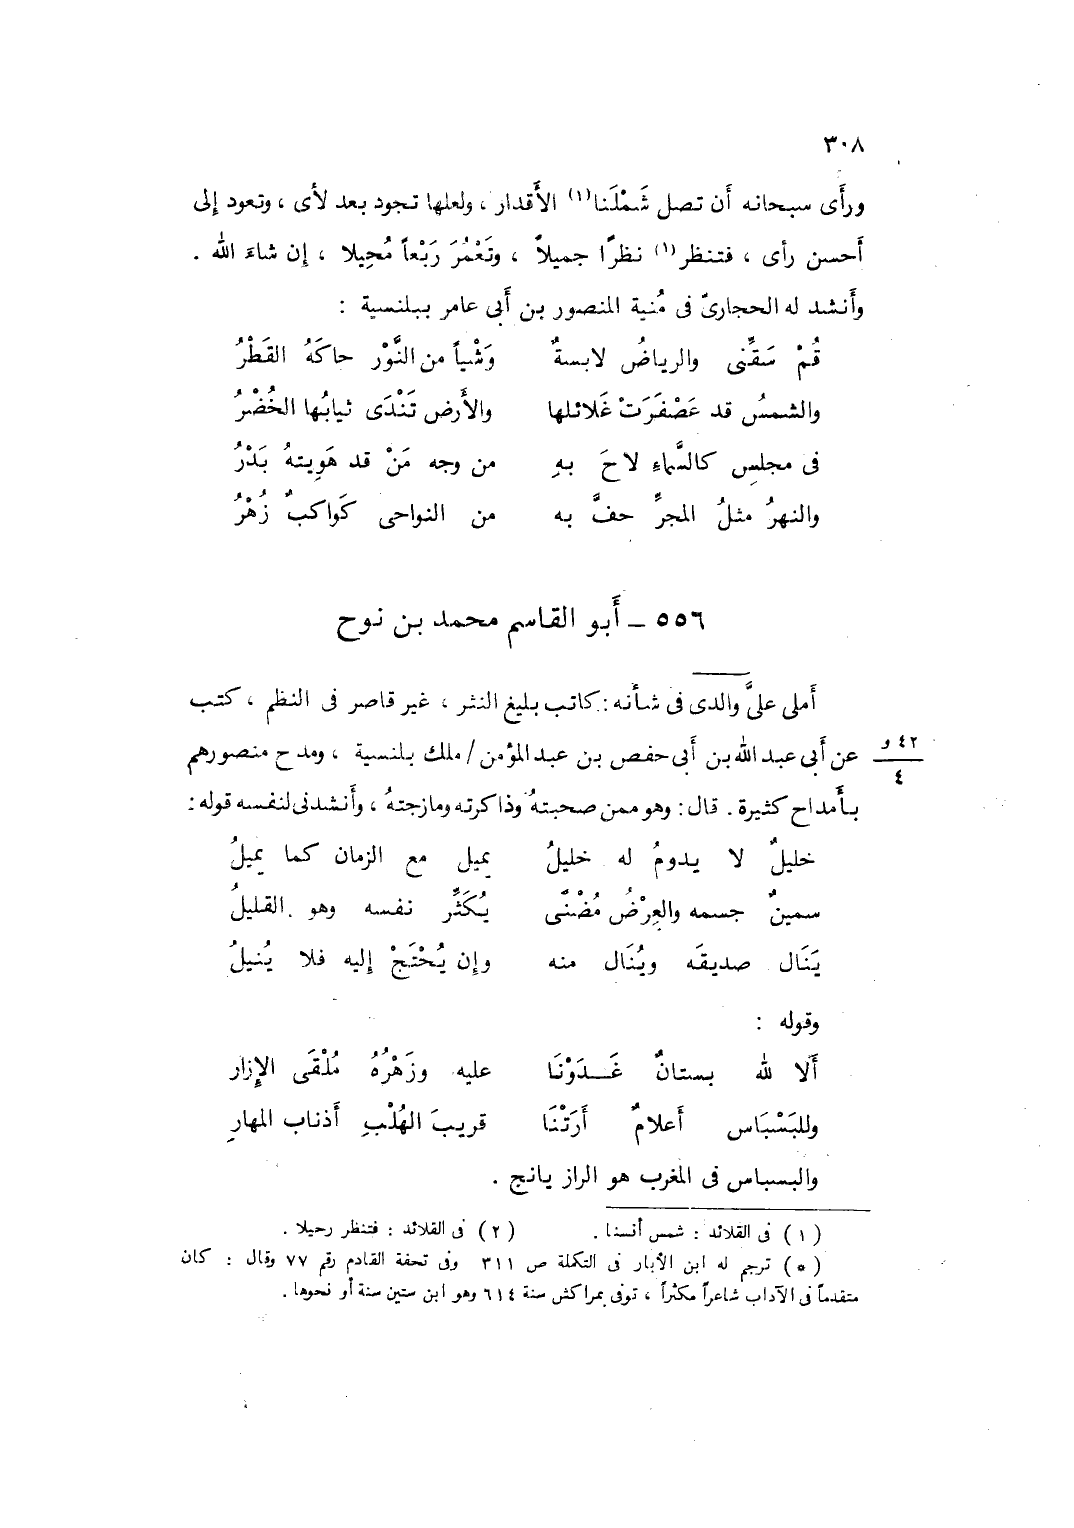 ٣٠٨
ورأَى سبحانه أَن تصل شَمْلَنا(١) الأَقدار ، ولعلها تجود بعد لأى ، وتعود إلى
أَحسن رأى ، فتنظر(١) نظرًا جميلاً ، وتَعْمُرَ رَبْعاً مُحِيلا ، إن شاءَ الله .
وأَنشد له الحجارىّ فى مُنية المنصور بن أَبى عامر ببلنسية :
قُمْ سَقِّنى والرياضُ لابسةٌ وَشْياً من النَّوْر حاكَهُ القَطْرُ
والشمسُ قد عَصْفَرَتْ غَلائلها والأَرض تَنْدَى ثيابُها الخُضْرُ
فى مجلسٍ كالسَّماءِ لاحَ بهِ من وجه مَنْ قد هَوِيتهُ بَدْرُ
والنهرُ مثلُ المجرِّ حفَّ به من النواحى كَواكبٌ زُهْرُ
٥٥٦ ـ أَبو القاسم محمد بن نوح
أَملى علىَّ والدى فى شأنه : كاتب بليغ النثر ، غير قاصر فى النظم ، كتب
عن أَبى عبد الله بن أَبى حفص بن عبد المؤمن / ملك بلنسية ، ومدح منصورهم
٤٢ و
٤
بأَمداح كثيرة . قال : وهو ممن صحبتهُ وذاكرته ومازجتهُ ، وأَنشدنى لنفسه قوله :
خليلٌ لا يدومُ له خليلُ يميل مع الزمان كما يميلُ
سمينٌ جسمه والعِرْضُ مُضْنًى يُكَثِّر نفسه وهو القليلُ
يَنَال صديقَه ويُنَال منه وإن يُحْتَجْ إليه فلا يُنيلُ
وقوله :
أَلا لله بستانٌ غَــدَوْنَا عليه وزَهْرُهُ مُلْقَى الإزار
وللبَسْبَاس أَعلامٌ أَرَتْنَا قريبَ الهُلْبِ أَذناب المهارِ
والبسباس فى المغرب هو الراز يانج .
( ١ ) فى القلائد : شمس أنسنا . ( ٢ ) فى القلائد : فتنظر رحيلا .
( * ) ترجم له ابن الأبار فى التكملة ص ٣١١ وفى تحفة القادم رقم ٧٧ وقال : كان
متقدماً فى الآداب شاعراً مكثراً ، توفى بمراكش سنة ٦١٤ وهو ابن ستين سنة أو نحوها .